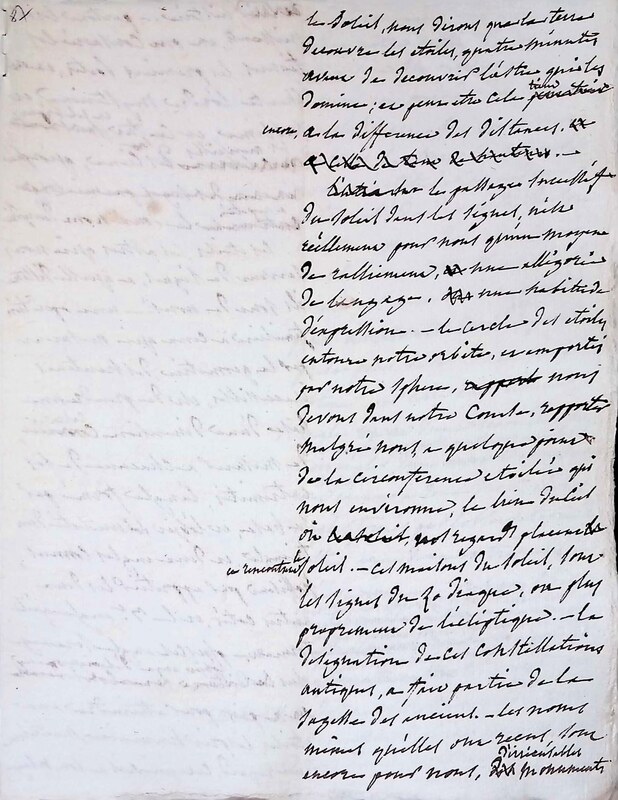 le Soleil, nous disons que la terre
decouvre les étoiles, quatre minutes
avant de decouvrir l'astre qui les
domine; et peut etre cela tient
encore, a la difference des distances.
le passage successif
du Soleil dans les signes, n'est
réellement pour nous qu'un moyen
de ralliement, une allégorie
de langage, une habitude
d'expression. – le cercle des étoiles
entoure notre orbite, et emportés
par notre sphere, nous
devons dans notre course, rapporter
malgré nous, a quelque point
de la circonférence étoilée qui
nous environne, le lieu du ciel
où nos regards placent le
Soleil. – ces maisons du Soleil, sont
les signes du Zodiaque, ou plus
proprement de l'écliptique. – la
désignation de ces constellations
antiques, a fait partie de la
sagesse des anciens. – les noms
mêmes qu'elles ont reçus, sont
encore pour nous, d'irrécusables monuments